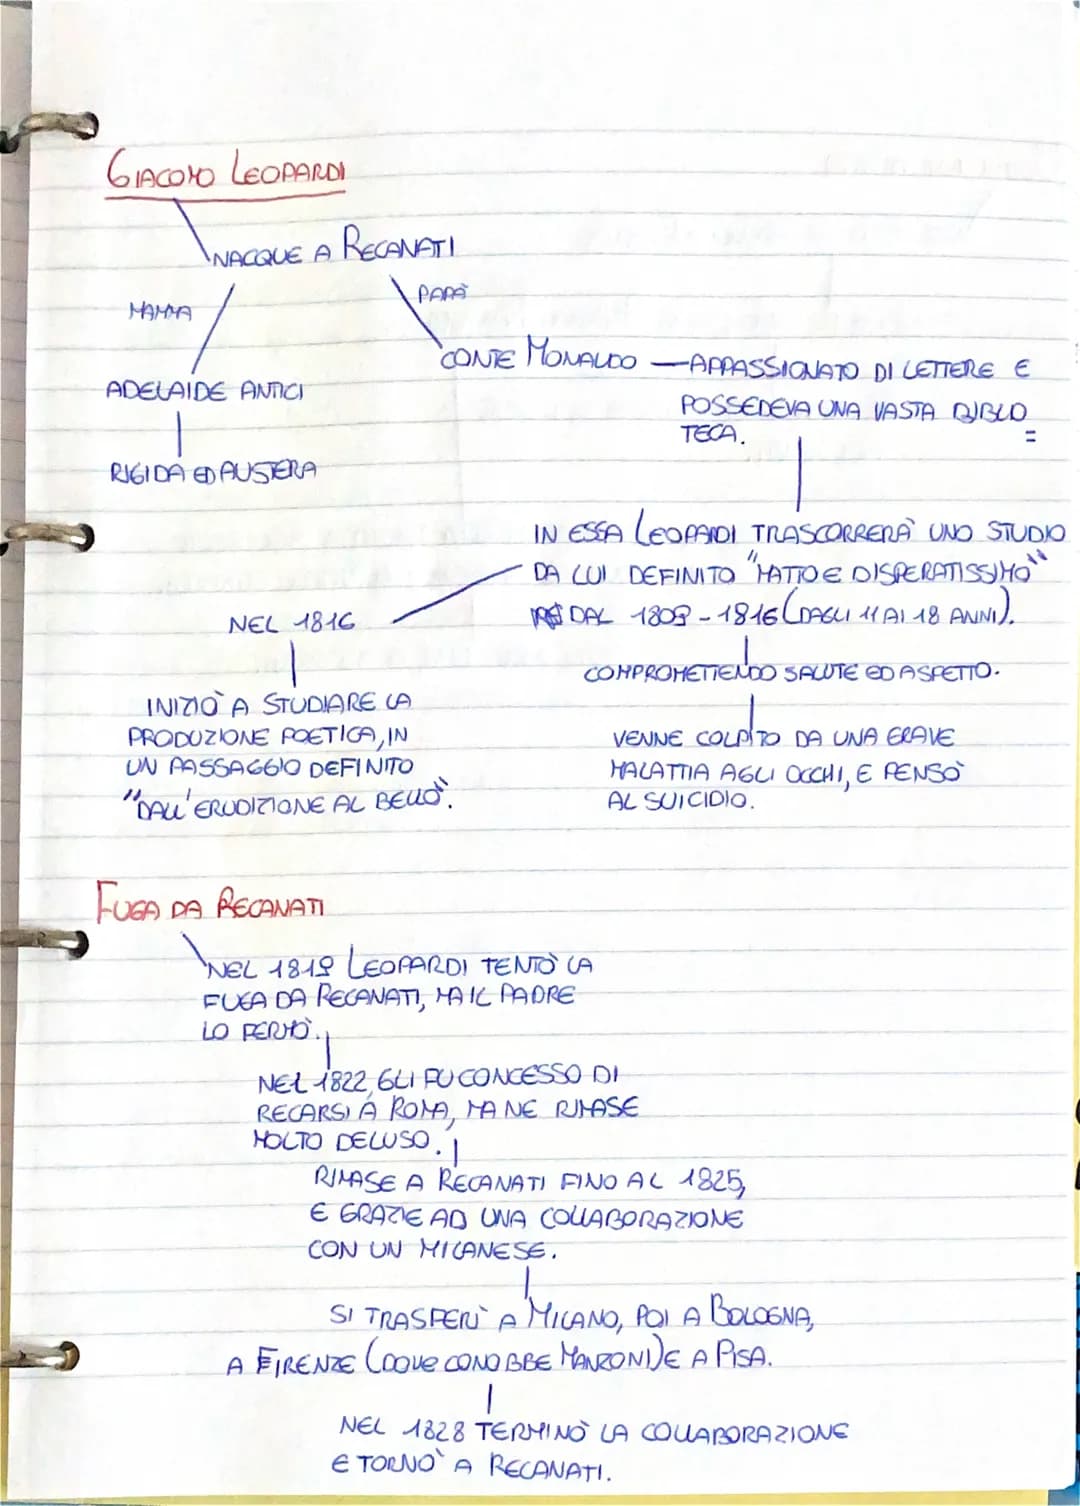 GIACOMO LEOPARDI
NACQUE A RECANATI
MAMMA
PAPÀ
CONTE MONALDO — APPASSIONATO DI LETTERE E
ADELAIDE ANTICI
POSSEDEVA UNA VASTA BIBLIO
TECA.
RIGIDA ED AUSTERA
IN ESSA LEOPARDI TRASCORRERÀ UNO STUDIO
DA LUI DEFINITO "MATTO E DISPERATISSIMO"
DAL 1809 - 1816 (DAGLI 11 AI 18 ANNI).
NEL 1816
COMPROMETTENDO SALUTE ED ASPETTO.
INIZIÒ A STUDIARE LA
PRODUZIONE POETICA, IN
UN PASSAGGIO DEFINITO
"DALL'ERUDIZIONE AL BELLO".
VENNE COLPITO DA UNA GRAVE
MALATTIA AGLI OCCHI, E PENSÒ
AL SUICIDIO.
FUGA DA RECANATI
NEL 1819 LEOPARDI TENTÒ LA
FUGA DA RECANATI, MA IL PADRE
LO FERMÒ.
NEL 1822, GLI FU CONCESSO DI
RECARSI A ROMA, MA NE RIMASE
MOLTO DELUSO.
RIMASE A RECANATI FINO AL 1825,
E GRAZIE AD UNA COLLABORAZIONE
CON UN MILANESE.
SI TRASFERÌ A MILANO, POI A BOLOGNA,
A FIRENZE (DOVE CONOBBE MANZONI) E A PISA.
NEL 1828 TERMINÒ LA COLLABORAZIONE
E TORNÒ A RECANATI.